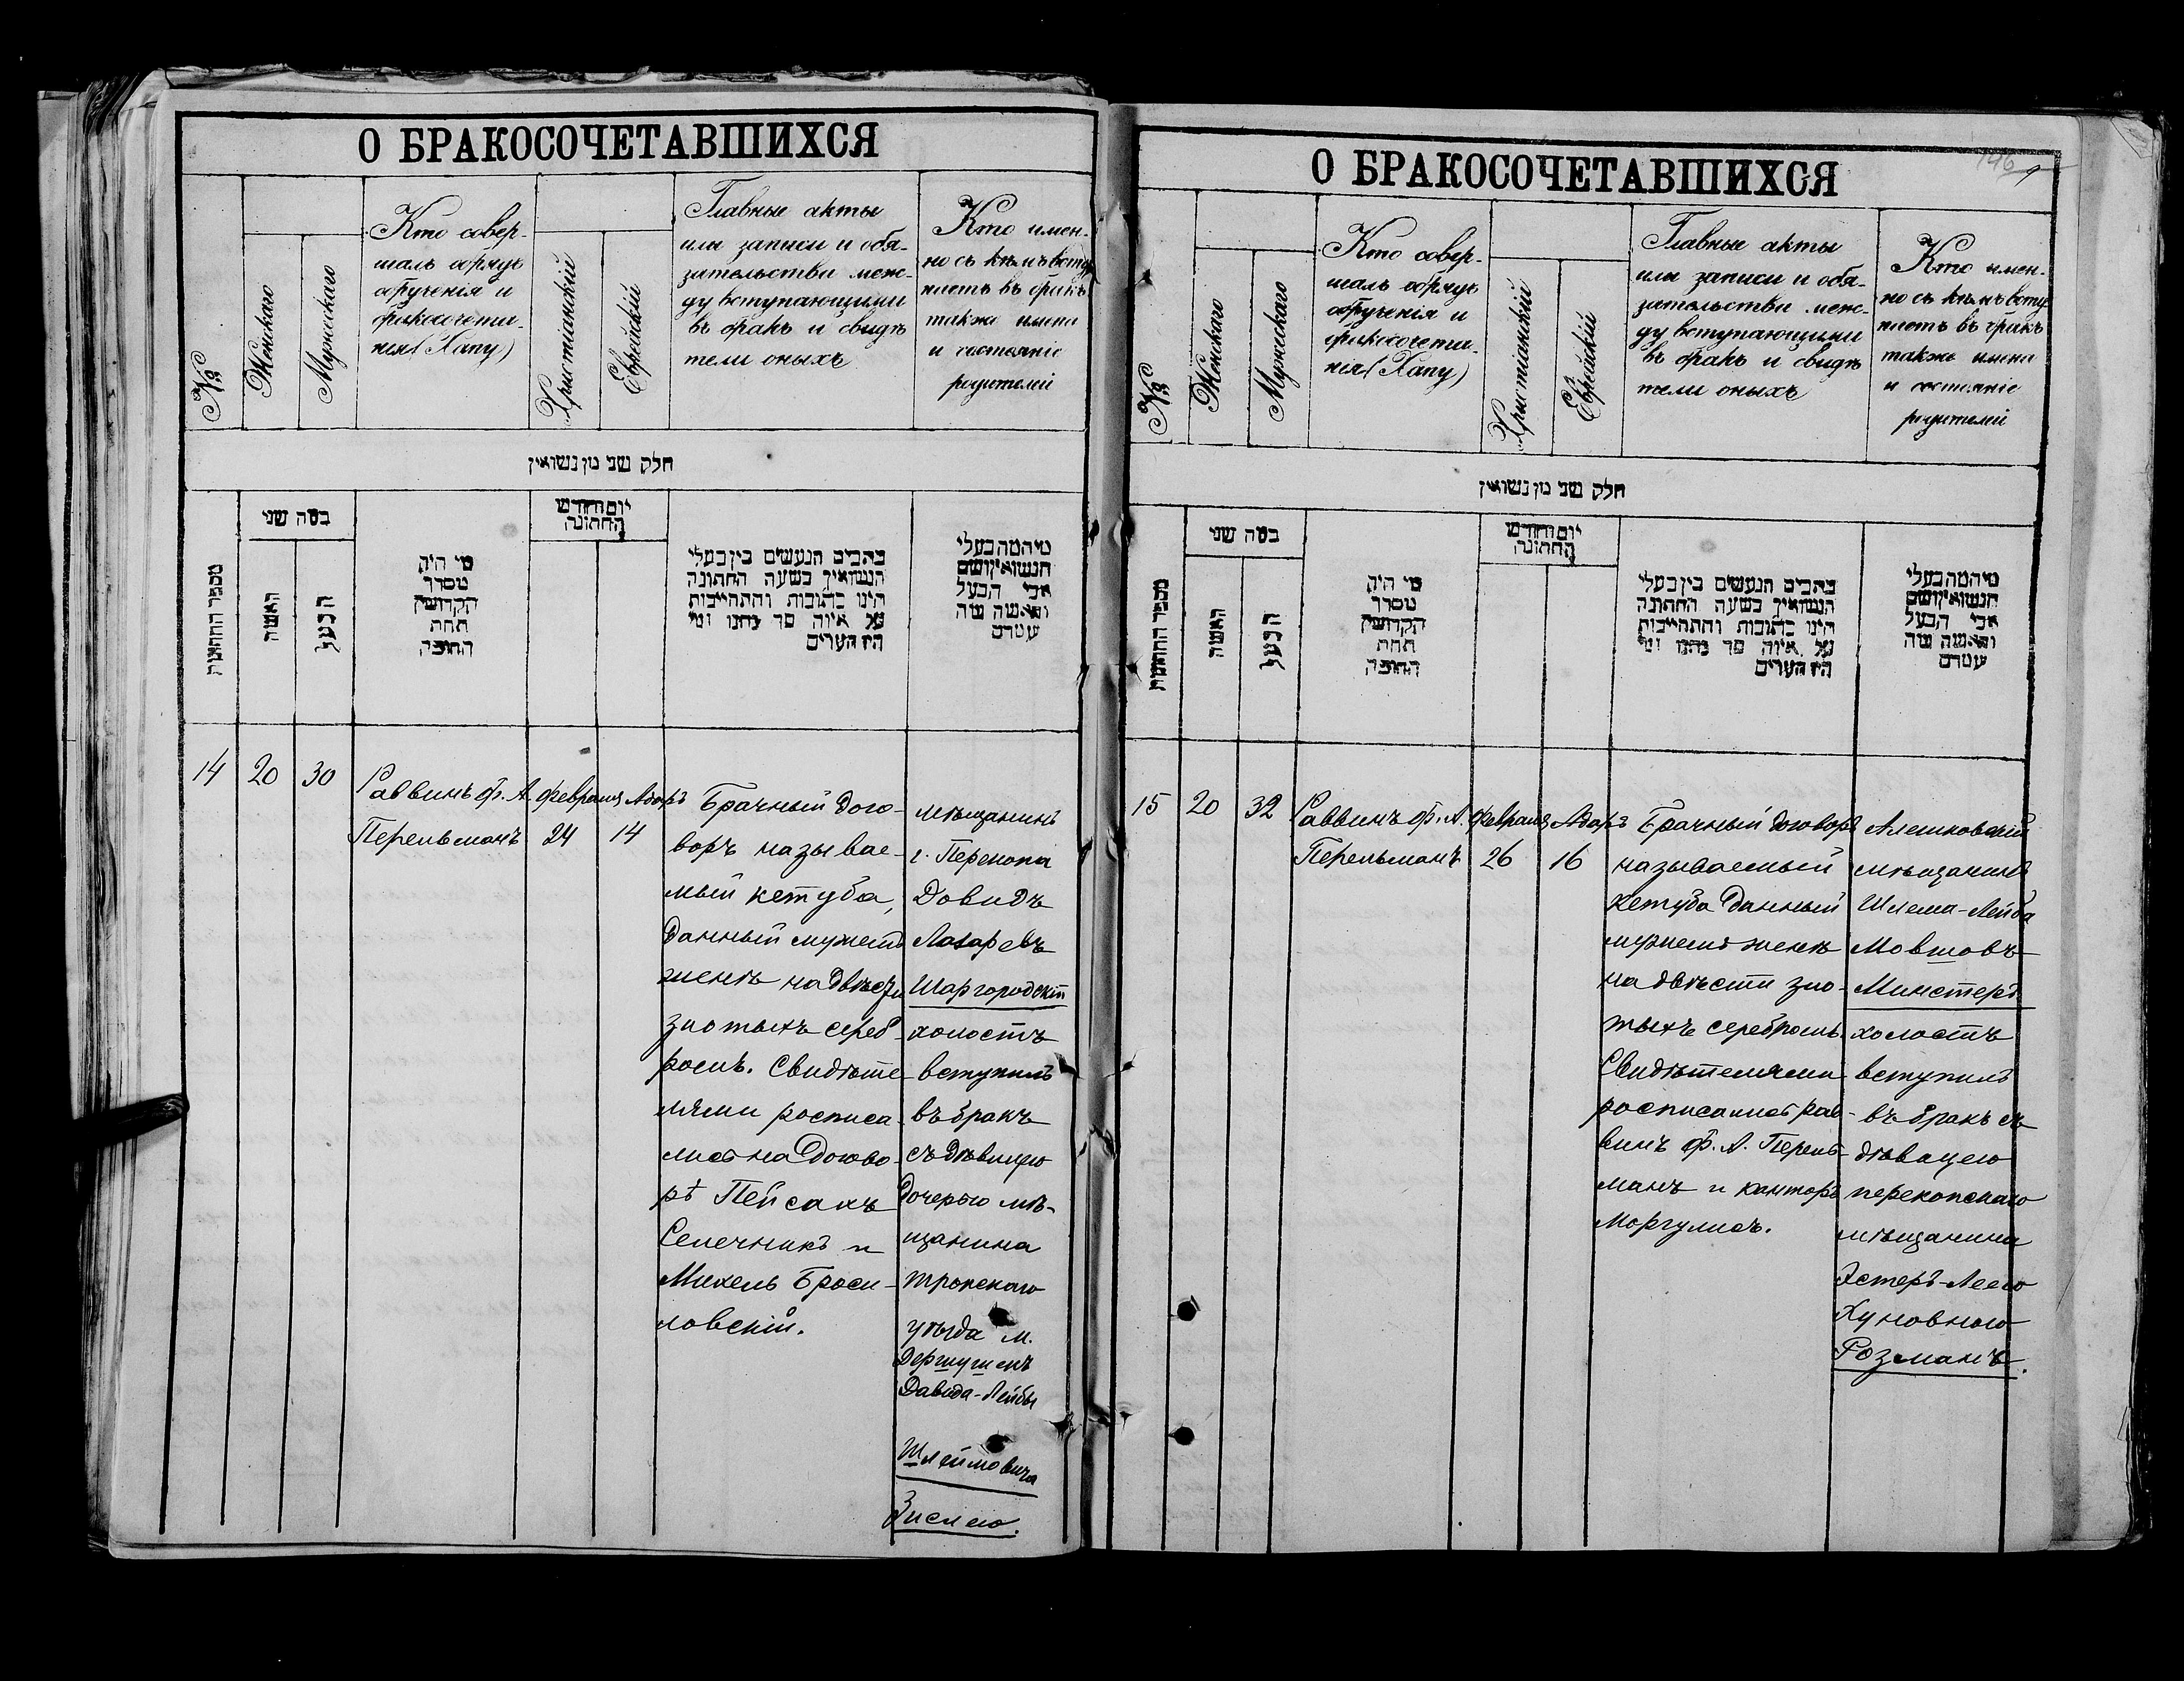 О БРАКОСОЧЕТАВШИХСЯ
№
Женскаго
Мужескаго
Кто совер-
шалъ обрядъ
обрученія и
бракосочета-
нія (Хапу)
Христіанскій
Еврейскій
Главные акты
или записи и обя-
зательства меж-
ду вступающими
въ бракъ и свидѣ
тели оныхъ
Кто имен-
но съ кѣмъ всту
паетъ въ бракъ
также имена
и состояніе
родителей
חלק שני מן נשואין
מספר החתונות
במה שני
האשה
הבעל
מי היה
מסדר
הקדושין
תחת
החופה
יום וחודש
החתונה
כתבים הנעשים בין בעלי
הנשואין בשעה החתונה
היינו כתובות והתחייבות
על איזה סך נתנו ומי
היו העדים
מיהמה בעלי
הנשואין ושם
אבי הבעל
והאשה ומה
עמדם
14
20
30
Раввинъ Ф. А.
Перельманъ
Февраля
24
Адаръ
14
Брачный дого-
воръ называе-
мый кетуба,
данный мужемъ
женѣ на двѣсти
злотыхъ сереб-
ромъ. Свидѣте-
лями росписа-
лись на догово-
рѣ Пейсахъ
Селечникъ и
Михель Броси-
ловскій.
мѣщанинъ
г. Перекопа
Довидъ
Лазаревъ
Шаргородскій
холостъ
вступилъ
въ бракъ
съ дѣвицею
дочерью мѣ-
щанина
трокскаго
уѣзда м.
Давида-Лейбы
Шлеймовича
Зислею.
О БРАКОСОЧЕТАВШИХСЯ
146
№
Женскаго
Мужескаго
Кто совер-
шалъ обрядъ
обрученія и
бракосочета-
нія (Хапу)
Христіанскій
Еврейскій
Главные акты
или записи и обя-
зательства меж-
ду вступающими
въ бракъ и свидѣ
тели оныхъ
Кто имен-
но съ кѣмъ всту
паетъ въ бракъ
также имена
и состояніе
родителей
חלק שני מן נשואין
מספר החתונות
במה שני
האשה
הבעל
מי היה
מסדר
הקדושין
תחת
החופה
יום וחודש
החתונה
כתבים הנעשים בין בעלי
הנשואין בשעה החתונה
היינו כתובות והתחייבות
על איזה סך נתנו ומי
היו העדים
מיהמה בעלי
הנשואין ושם
אבי הבעל
והאשה ומה
עמדם
15
20
32
Раввинъ Ф. А.
Перельманъ
Февраля
26
Адаръ
16
Брачный договоръ
называемый
кетуба данный
мужемъ женѣ
на двѣсти зло-
тыхъ серебромъ.
Свидѣтелями
росписались рав-
винъ Ф. А. Перель-
манъ и канторъ
Моргулисъ.
Алешковскій
мѣщанинъ
Шлема-Лейба
Мовшовъ
Минстеръ
холостъ
вступилъ
въ бракъ съ
дѣвицею
перекопскаго
мѣщанина
Эстеръ-Леею
Хуновною
Розманъ.